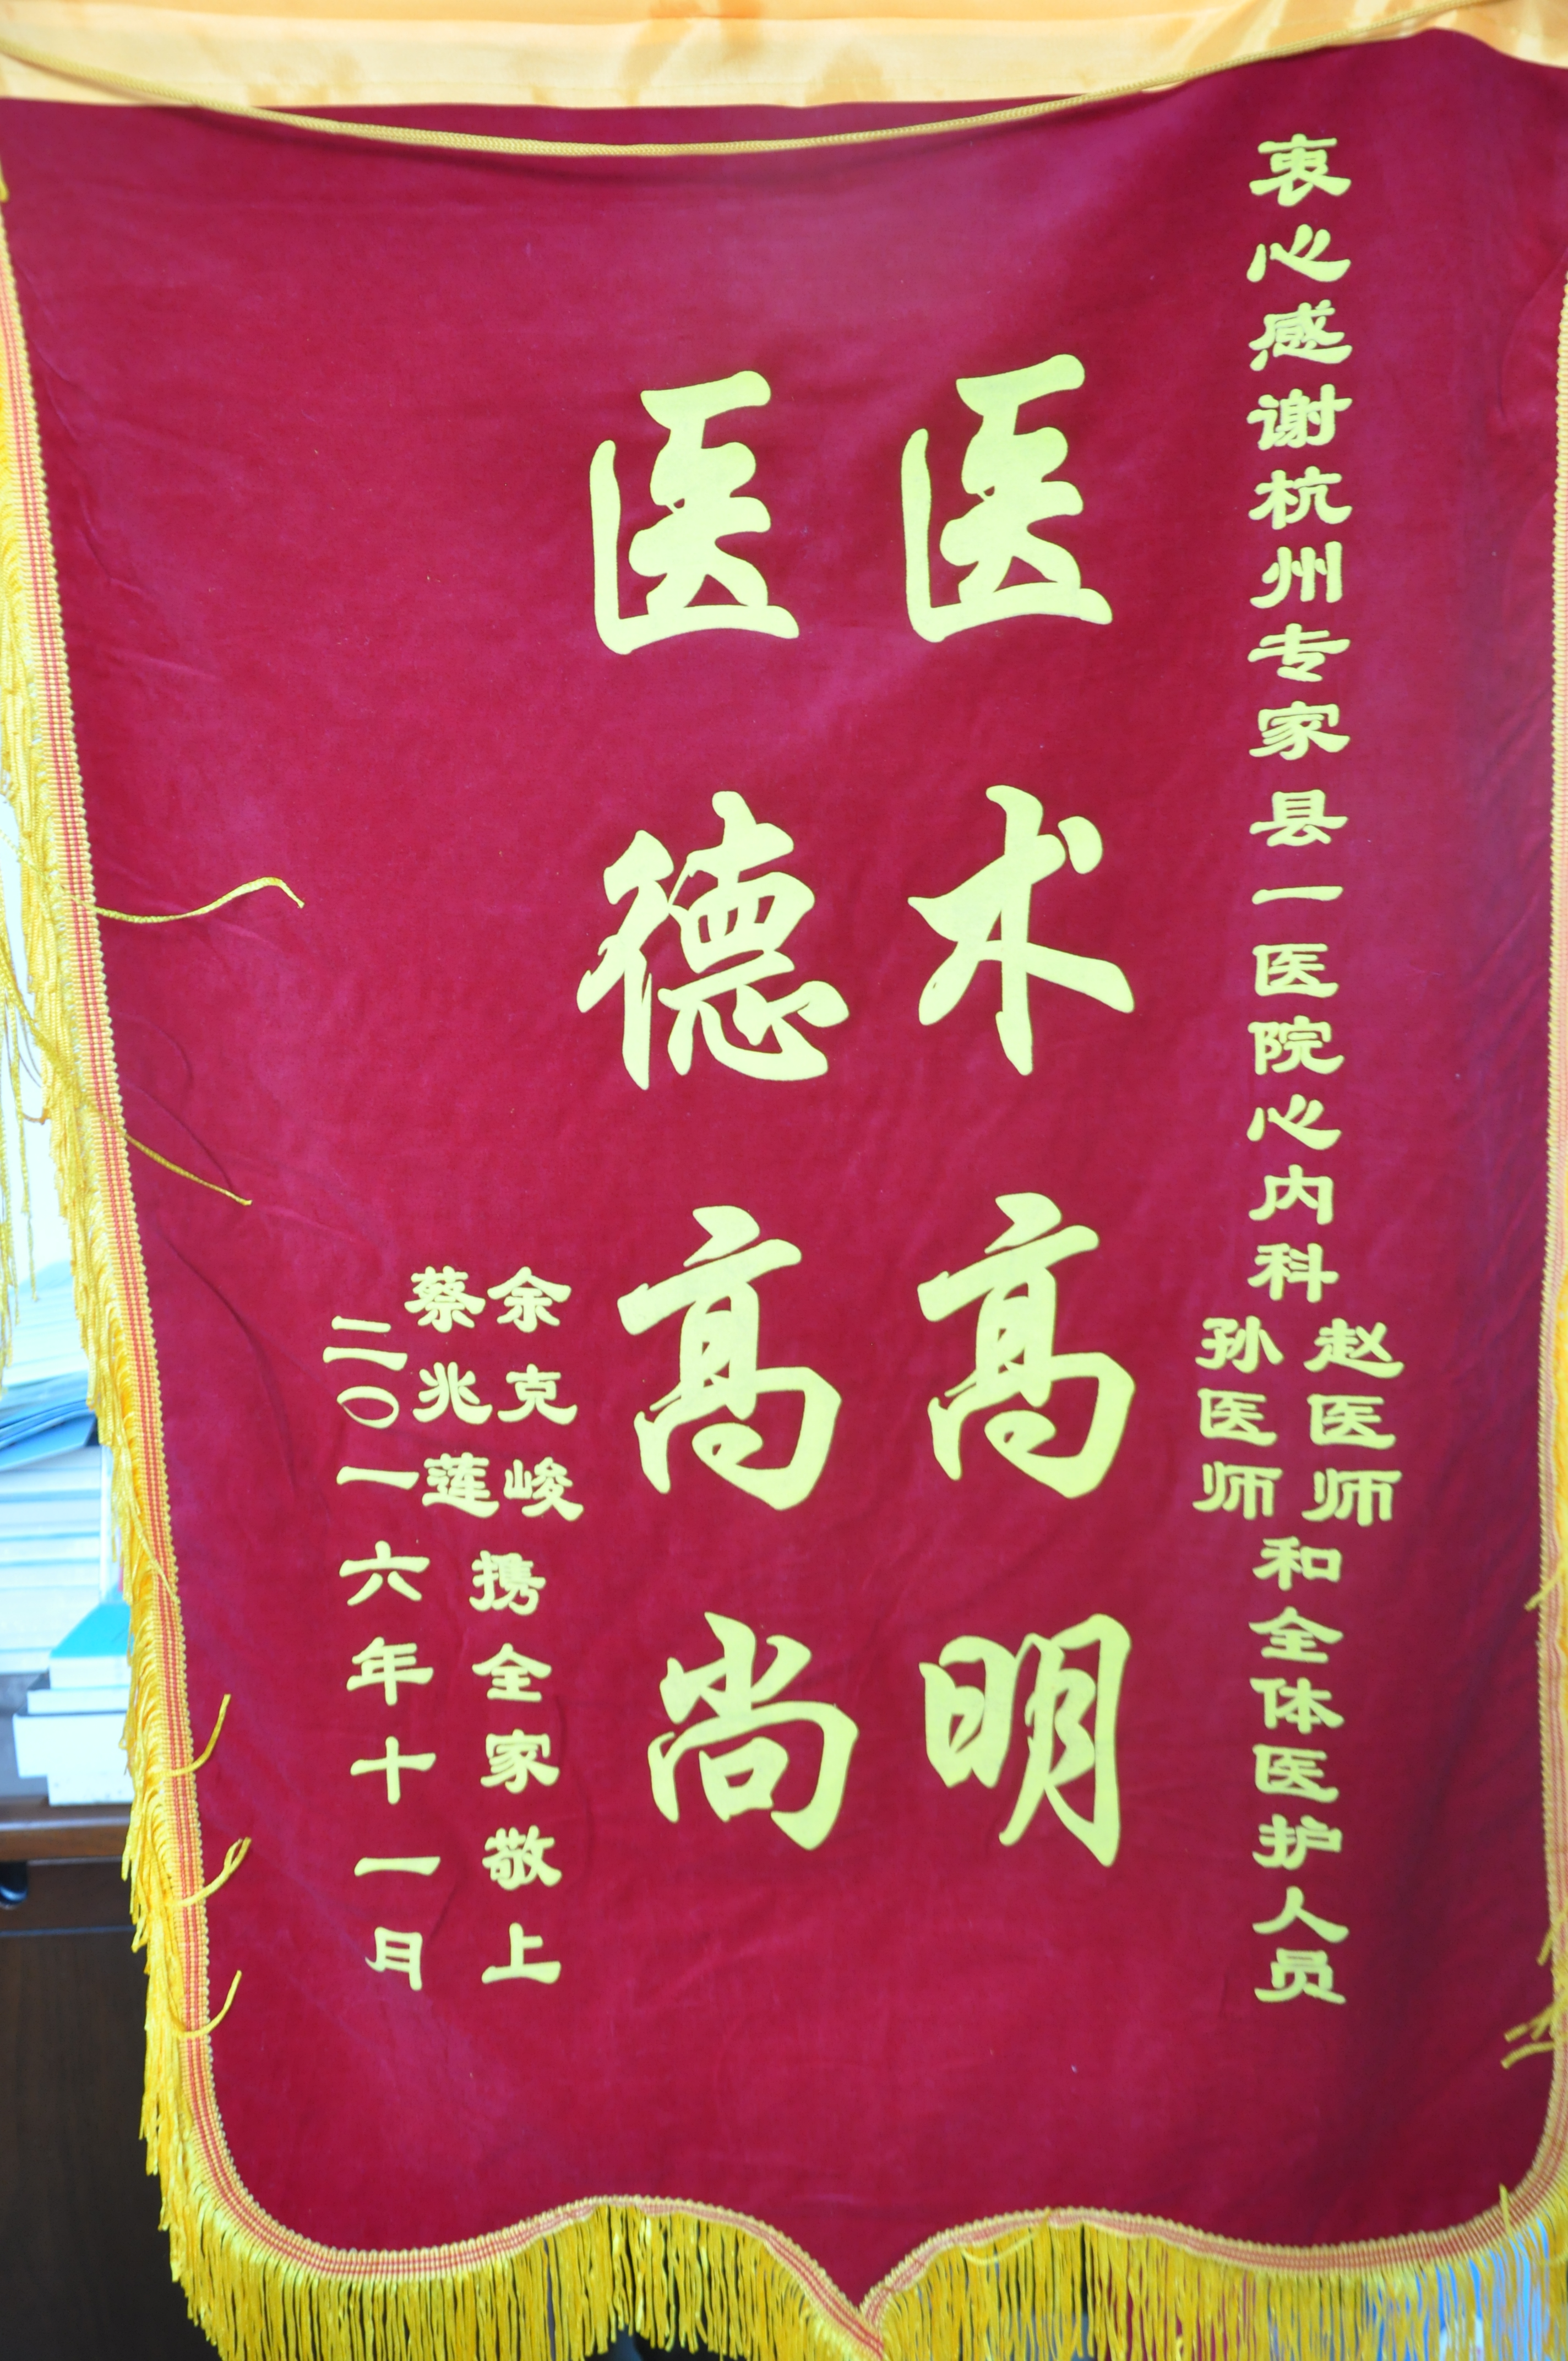 衷心感谢杭州专家县一医院心内科
赵医师
孙医师
和全体医护人员
医术高明
医德高尚
余克峻
蔡兆莲
携全家敬上
二〇一六年十一月